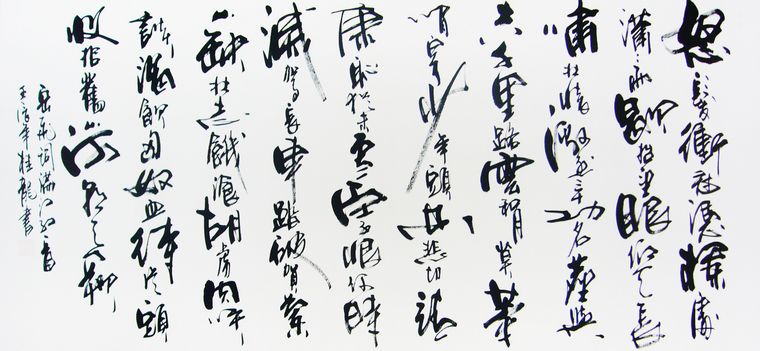 怒髮衝冠憑欄處
瀟瀟雨歇抬望眼仰天長
嘯壯懷激烈三十功名塵與
土八千里路雲和月莫等
閒白了少年頭空悲切靖
康恥猶未雪臣子恨何時
滅駕長車踏破賀蘭山
缺壯志饑飡胡虜肉笑
談渴飲匈奴血待從頭
收拾舊山河朝天闕
岳飛詞滿江紅一首
年桂龍書